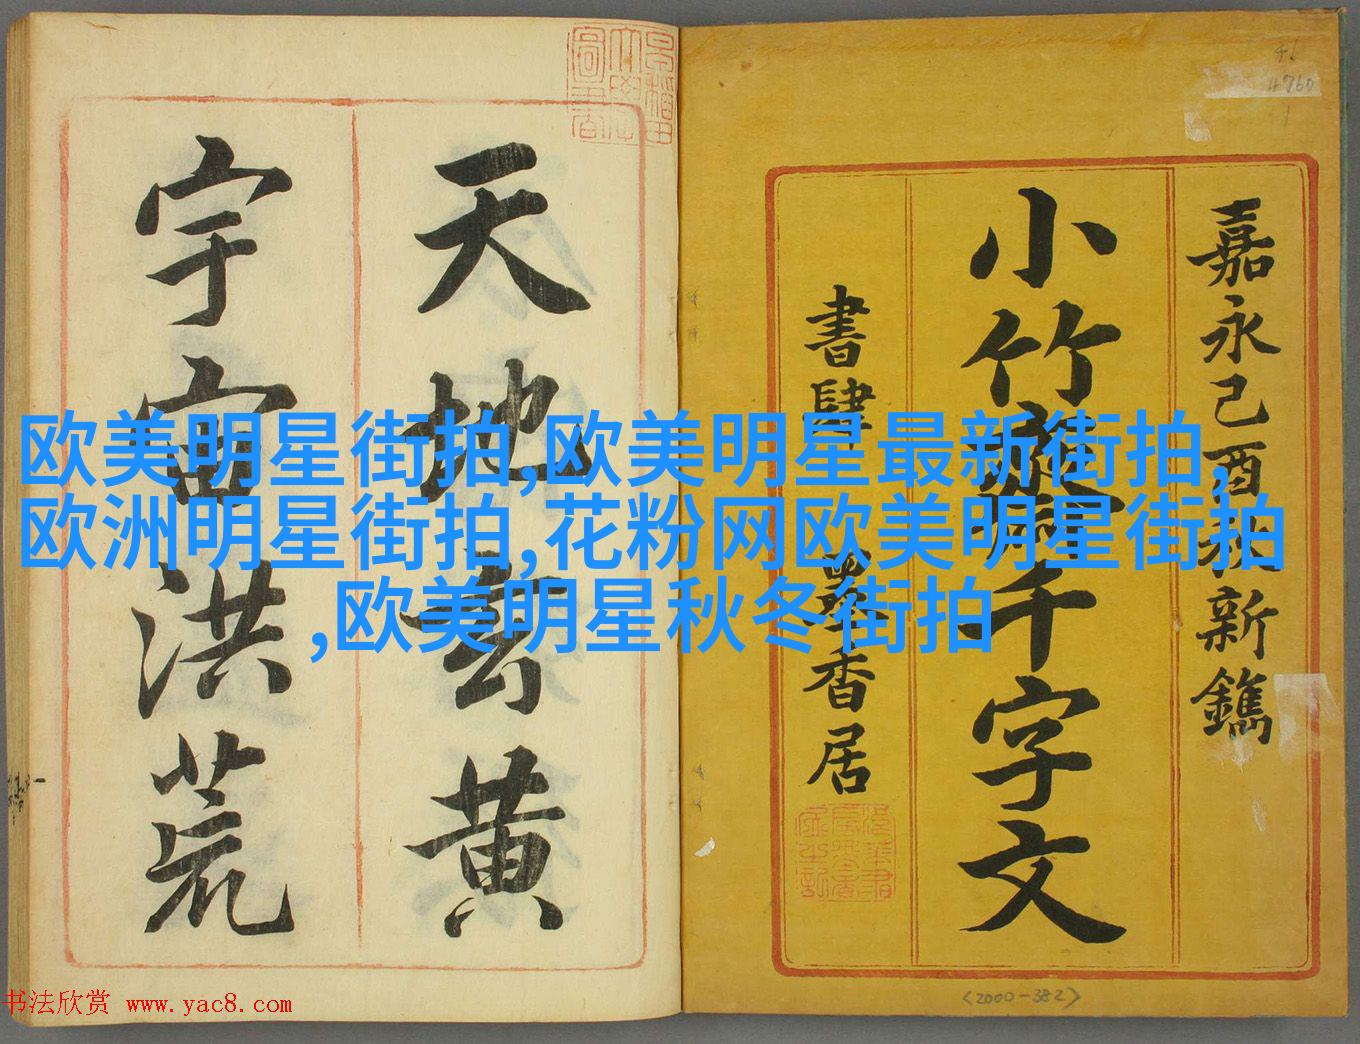 嘉永己酉秋新鐫
小竹 千字文
書肆 墨香居
天地玄黄
宇宙洪荒
欧美明星街拍,欧美明星最新街拍,
欧洲明星街拍,花粉网欧美明星街拍
,欧美明星秋冬街拍
4760
<2000-382>
书法欣赏 www.yac8.com